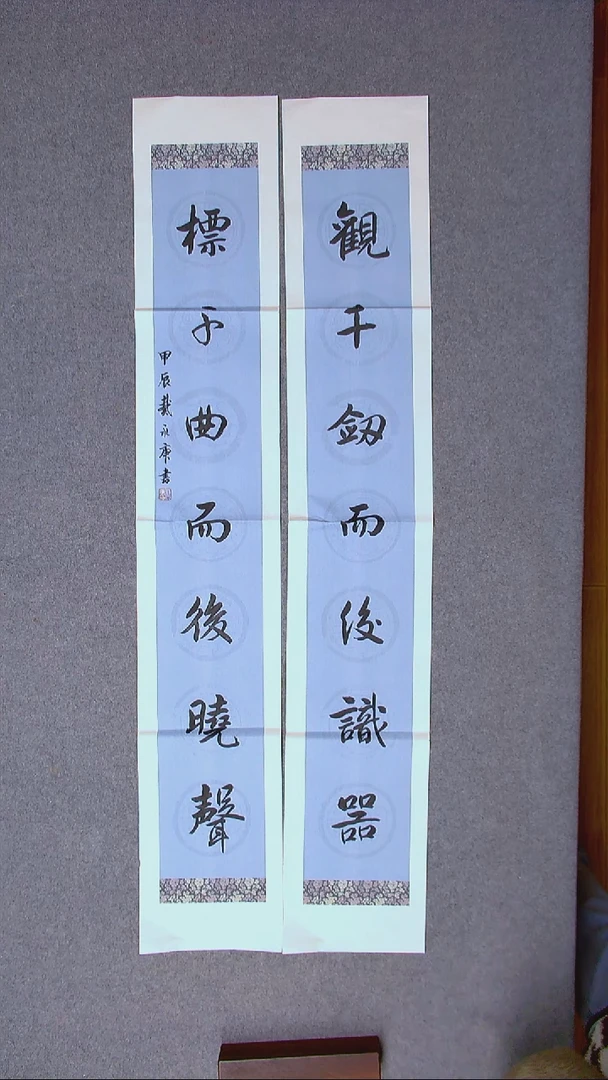 觀千劍而後識器
標千曲而後曉聲
甲辰戴永康書